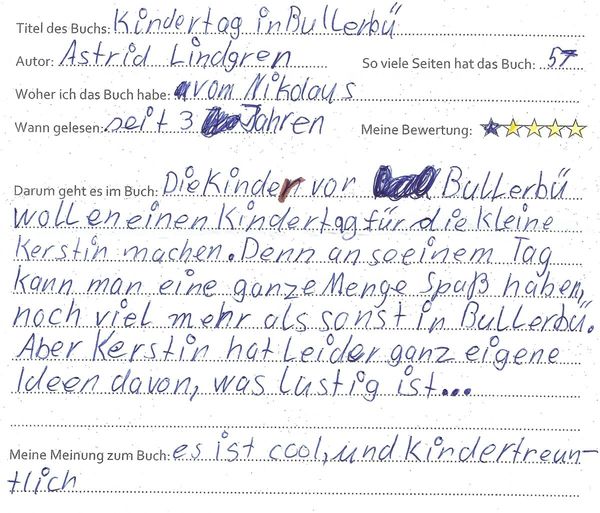 Titel des Buchs: Kindertag in Bullerbü
Autor: Astrid Lindgren So viele Seiten hat das Buch: 57
Woher ich das Buch habe: vom Nikolaus
Wann gelesen: seit 3 Jahren Meine Bewertung:
Darum geht es im Buch: Die Kinder vor Bullerbü
wollen einen Kindertag für die kleine
Kerstin machen. Denn an soeinem Tag
kann man eine ganze Menge Spaß haben,
noch viel mehr als sonst in Bullerbü.
Aber Kerstin hat Leider ganz eigene
Ideen davon, was lustig ist...
Meine Meinung zum Buch: es ist cool, und kindertreun-
tlich